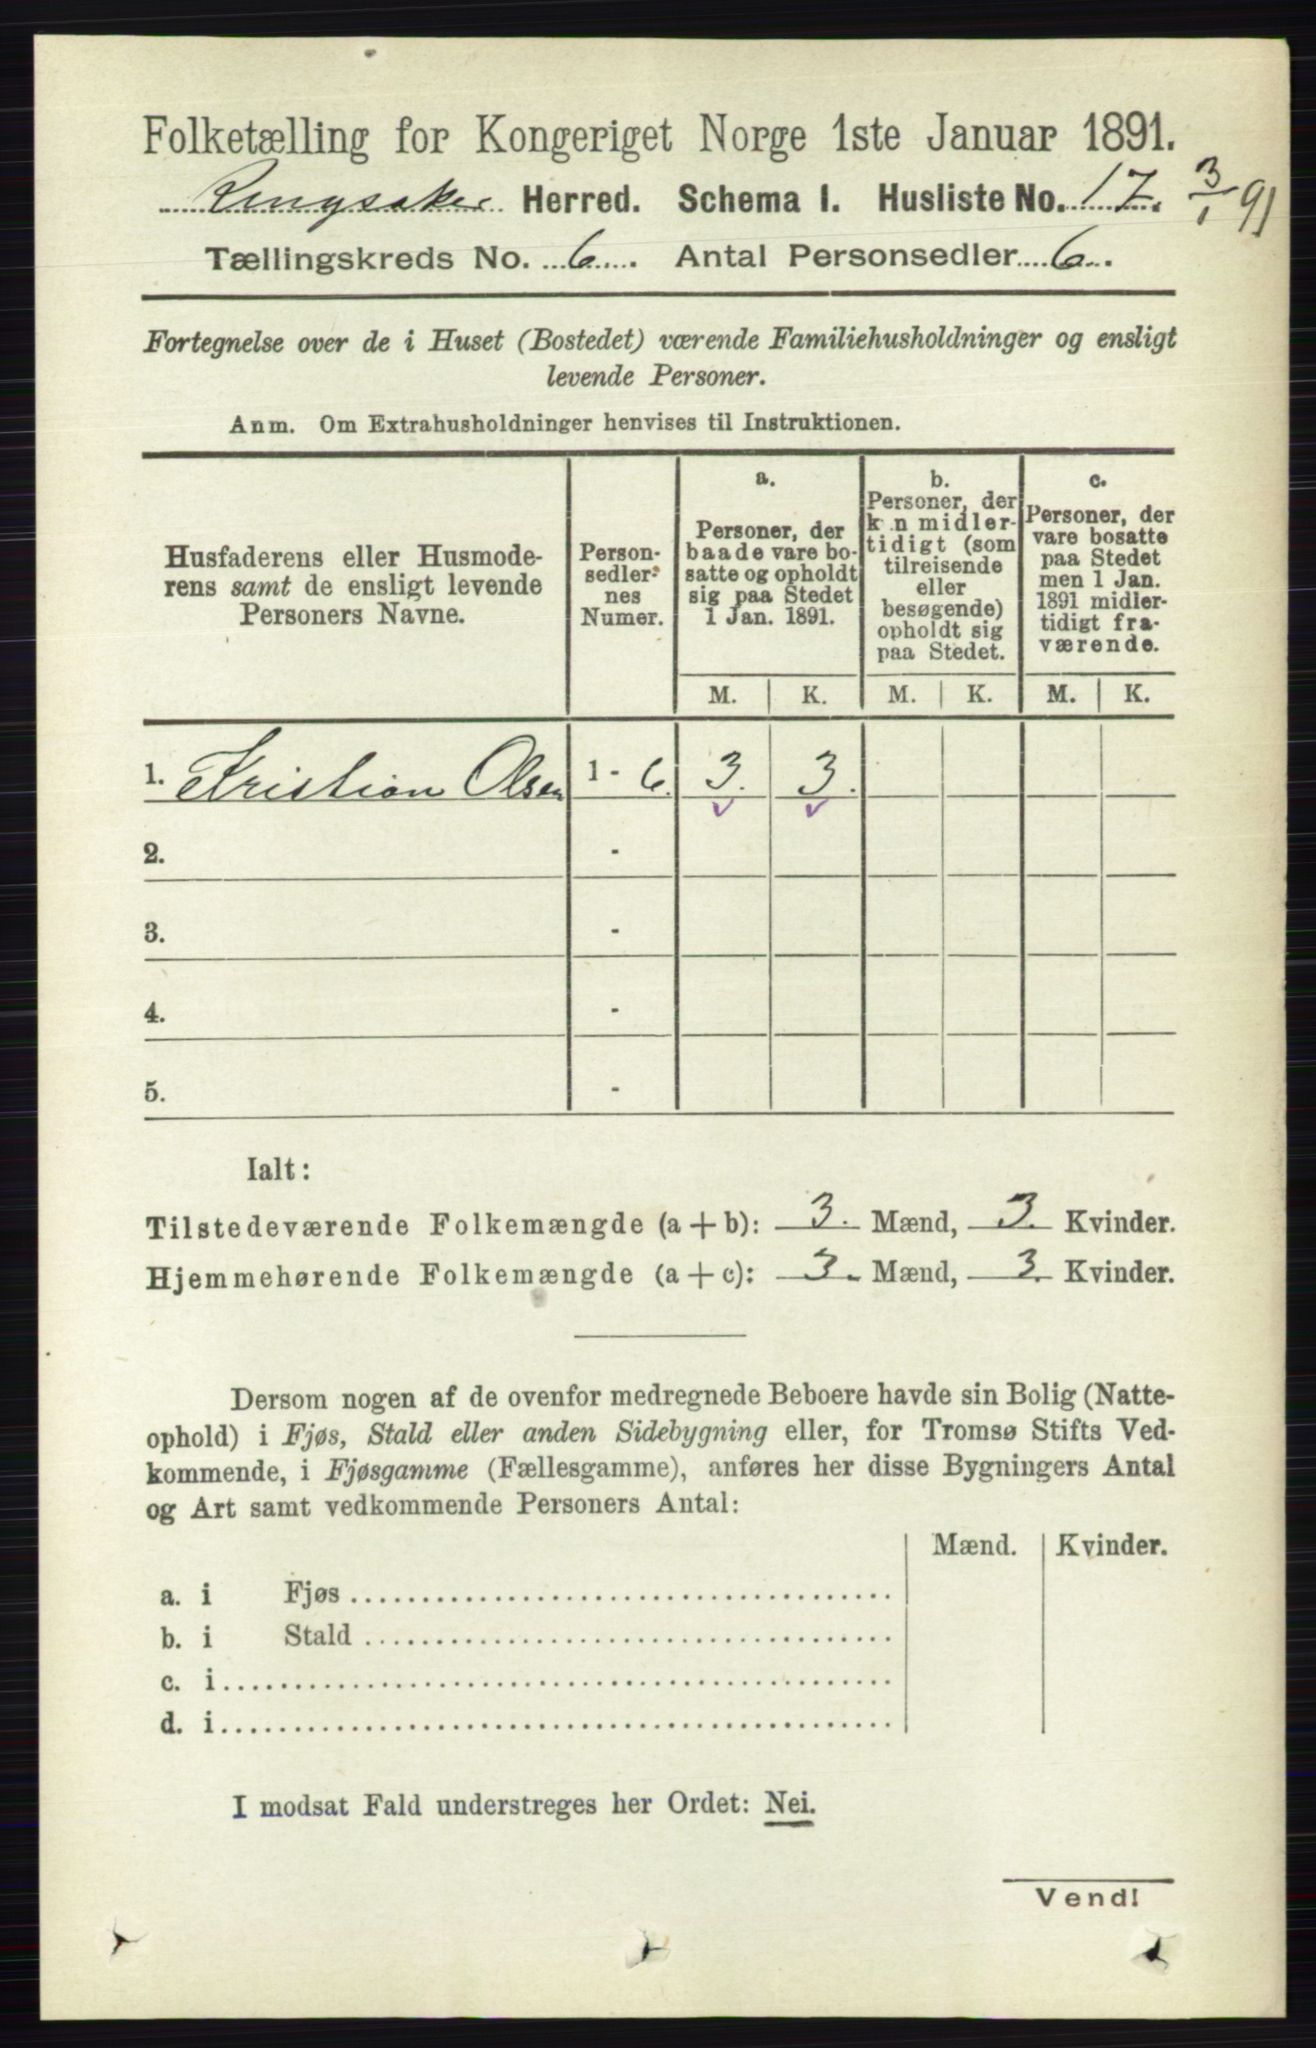 Folketælling for Kongeriget Norge 1ste Januar 1891.
Ringsaker Herred. Schema I. Husliste No. 17. 3/1 91
Tællingskreds No. 6. Antal Personsedler 6.
Fortegnelse over de i Huset (Bostedet) værende Familiehusholdninger og ensligt
levende Personer.
Anm. Om Extrahusholdninger henvises til Instruktionen.
Husfaderens eller Husmode-
rens samt de ensligt levende
Personers Navne.
Person-
sedler-
nes
Numer.
a.
Personer, der
baade vare bo-
satte og opholdt
sig paa Stedet
1 Jan. 1891.
b.
Personer, der
k n midler-
tidigt (som
tilreisende
eller
besøgende)
opholdt sig
paa Stedet.
c.
Personer, der
vare bosatte
paa Stedet
men 1 Jan.
1891 midler-
tidigt fra-
værende.
M. K. M. K. M. K.
1. Kristian Olsen 1 - 6. 3. 3.
2. -
3. -
4. -
5. -
Ialt:
Tilstedeværende Folkemængde (a + b): 3. Mænd, 3. Kvinder.
Hjemmehørende Folkemængde (a + c): 3. Mænd, 3. Kvinder.
Dersom nogen af de ovenfor medregnede Beboere havde sin Bolig (Natte-
ophold) i Fjøs, Stald eller anden Sidebygning eller, for Tromsø Stifts Ved-
kommende, i Fjøsgamme (Fællesgamme), anføres her disse Bygningers Antal
og Art samt vedkommende Personers Antal:
Mænd. Kvinder.
a. i Fjøs
b. i Stald
c. i
d. i
I modsat Fald understreges her Ordet: Nei.
Vend!